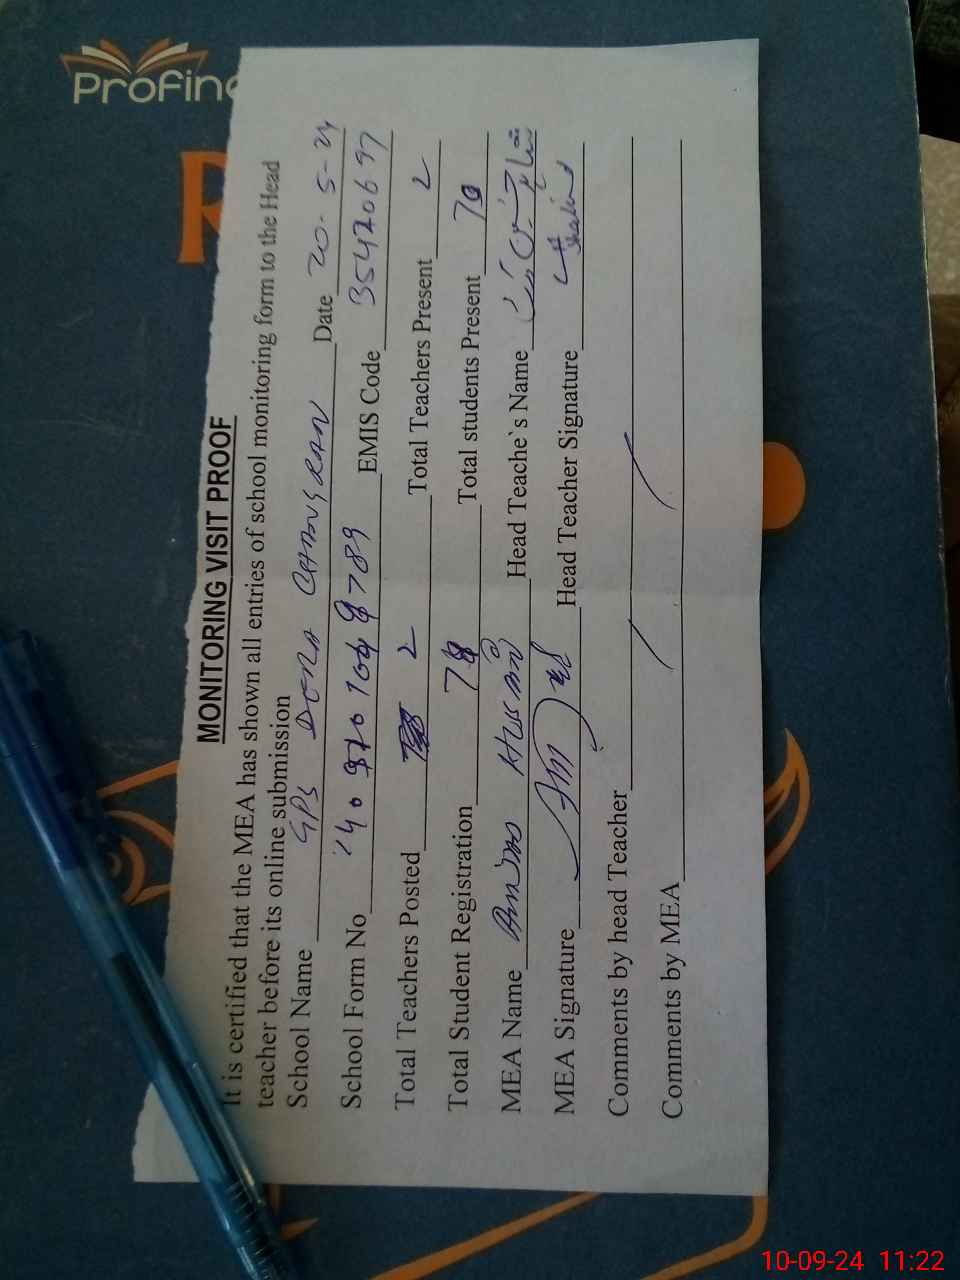 ProFin
R
MONITORING VISIT PROOF
It is certified that the MEA has shown all entries of school monitoring form to the Head
teacher before its online submission
School Name GPS DORA Date 20-5-24
School Form No EMIS Code 35420697
Total Teachers Posted 2 Total Teachers Present 2
Total Student Registration 78 Total students Present 70
MEA Name Head Teache`s Name
MEA Signature Head Teacher Signature
Comments by head Teacher
Comments by MEA
10-09-24 11:22